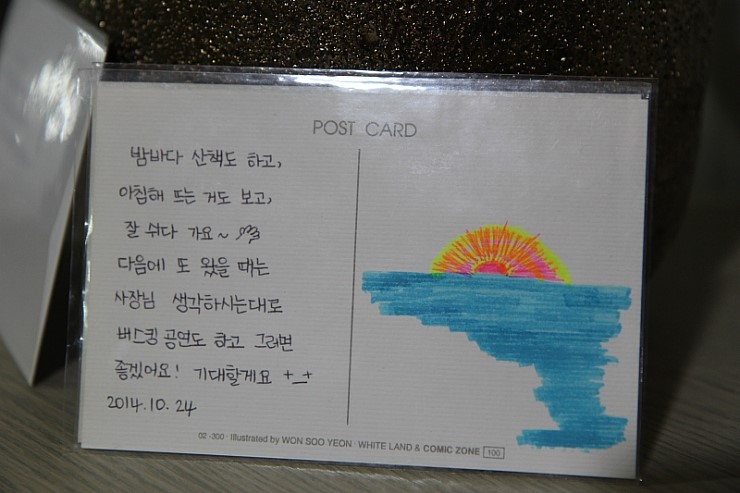 POST CARD
밤바다 산책도 하고,
아침해 뜨는 거도 보고,
잘 쉬다 가요~
다음에 또 왔을 때는
사장님 생각하시는대로
버스킹 공연도 하고 그러면
좋겠어요! 기대할게요 +_+
2014.10.24
02-300 · Illustrated by WON SOO YEON · WHITE LAND & COMIC ZONE 100